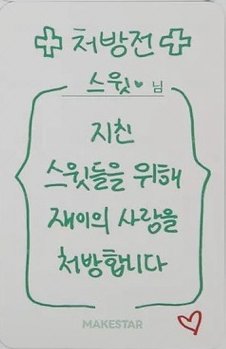 처방전
스윗♥ 님
지친
스윗들을 위해
재이의 사랑을
처방합니다
MAKESTAR